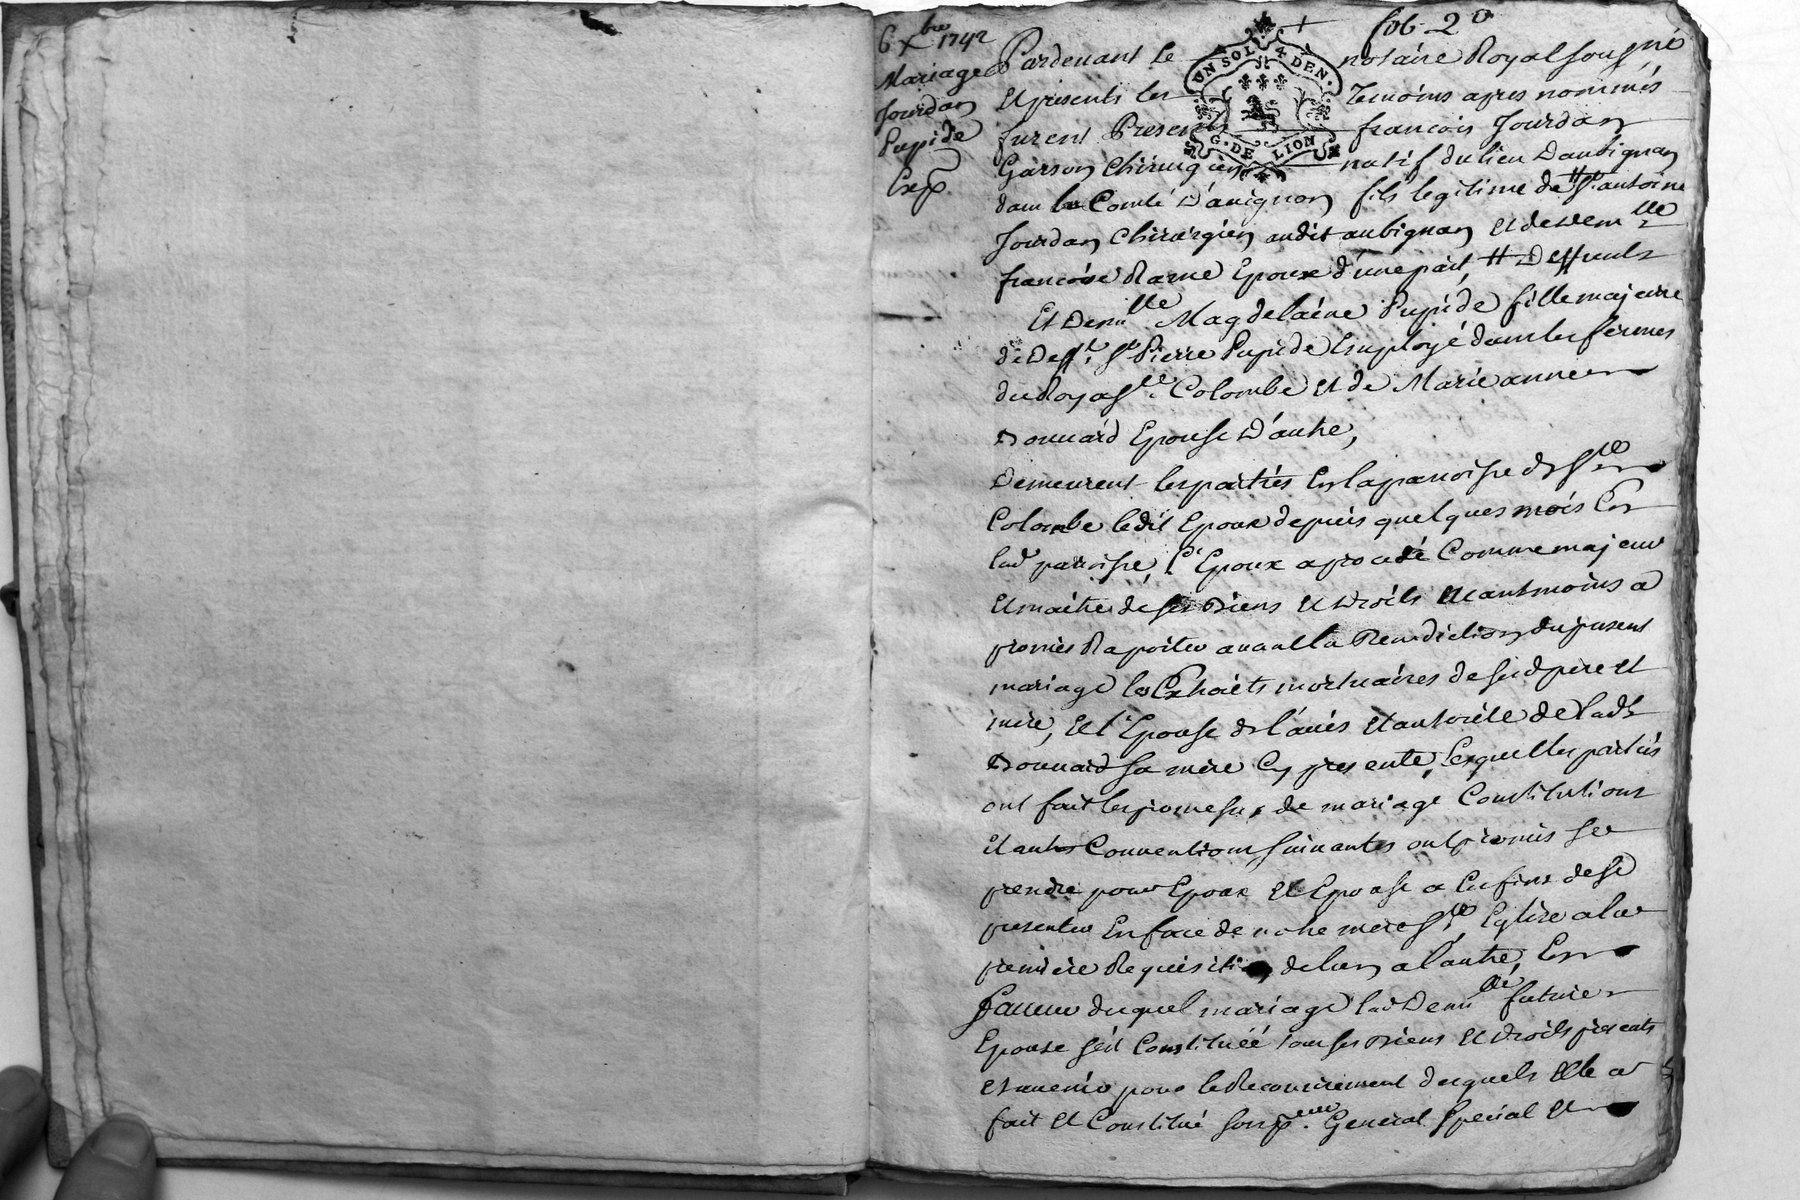 6 Xbre 1742
Mariage
Jourdan
Pupide
Exp.
fol. 2o
UN SOL 4 DEN.
G. DE LION
Pardevant le notaire Royal sousné
Et presents les Temoins apres nommés
furent Presents francois Jourdan
Garson chirurgien natif du lieu Daubignan
dans le Comté D'avignon fils legitime de Sr antoine
Jourdan chirurgien audit aubignan Et de Demlle
francoise Rame Epoux d'une part, # Deffunts
Et Demlle Magdelaine Pupide fille majeure
de Defft Sr Pierre Pupide Employé dans les fermes
du Roy a Ste Colombe Et de Marie anne
Bonnard Epouse D'autre,
Demeurent les parties En la parroisse de Ste
Colombe ledit Epoux depuis quelques mois En
lad parroisse, l'Epoux a procedé Comme majeur
Et maitre de ses Biens Et Droits Neantmoins a
promis Raporter avant la Benediction du present
mariage les Extraits mortuaires de sesd pere Et
mere, Et l'Epouse de l'avis Et authorite de lade
Bonnard sa mere Cy presente, Lesquelles parties
ont fait les promesses de mariage Constitutions
Et autres Conventions suivantes ont promis se
prendre pour Epoux Et Epouse a Ces fins de se
presenter En face de notre mere Ste Eglise a la
premiere Requisition de lun a l'autre, En
faveur duquel mariage lad Demlle future
Epouse s'est Constituée tous ses Biens Et Droits presents
Et avenir pour le Recouvrement desquels Elle a
fait Et Constitué son pr. General Special Et